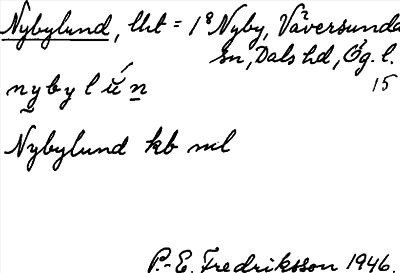 Nybylund, lht = 1⁸ Nyby, Väversunda
sn, Dals hd, Ög. l.
15
nybylún
Nybylund kb ml
P.-E. Fredriksson 1946.